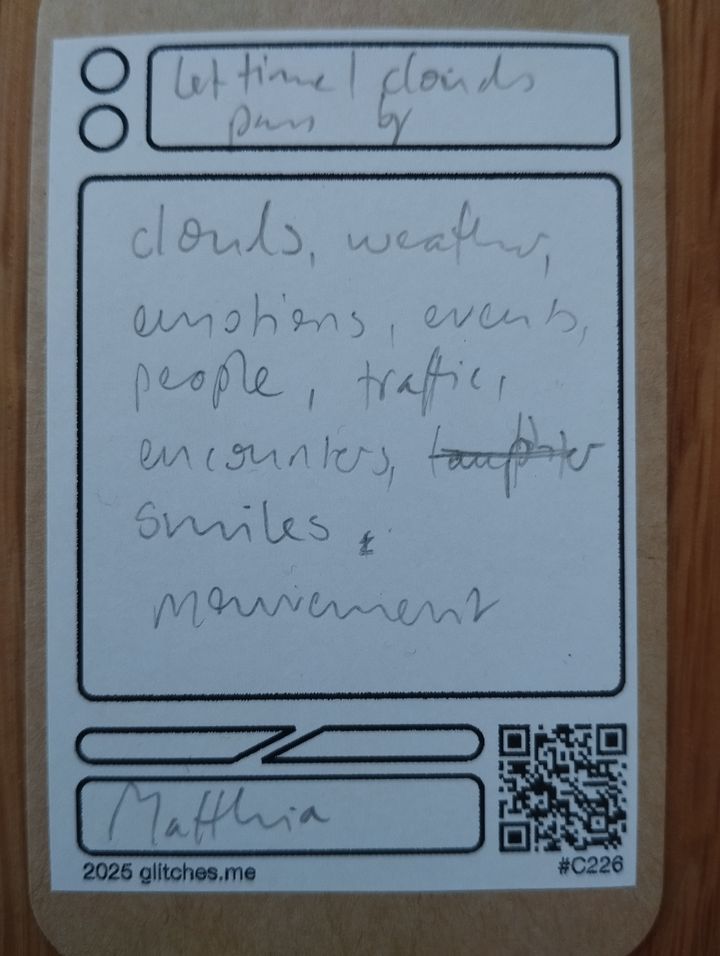 let time | clouds
pass by
clouds, weather,
emotions, events,
people, traffic,
encounters,
smiles.
mouvement
Matthia
2025 glitches.me
#C226